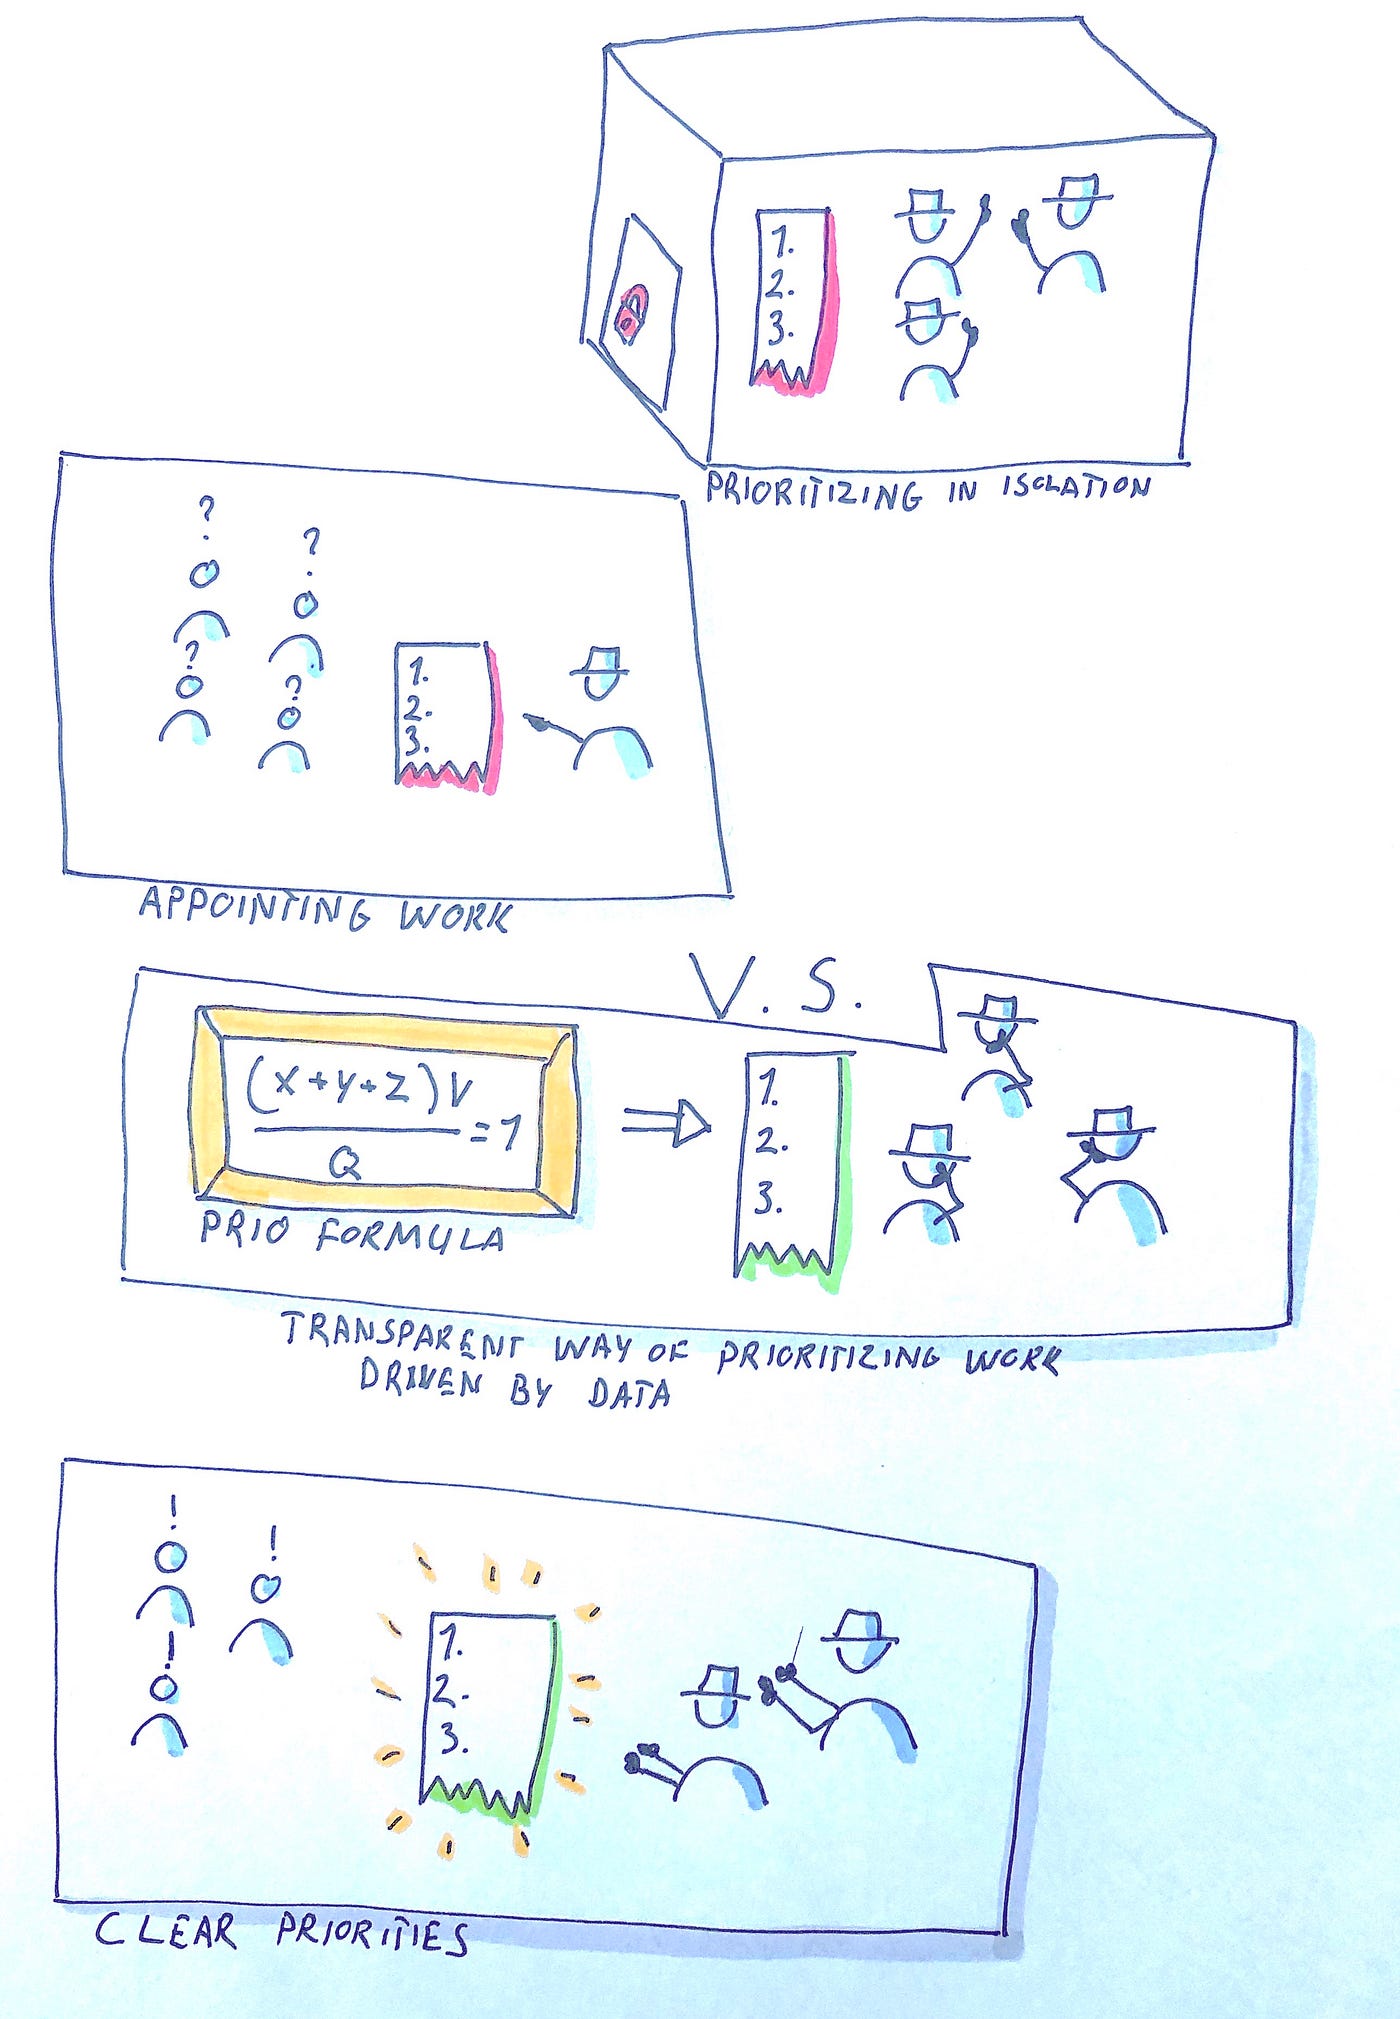 1.
2.
3.
PRIORITIZING IN ISOLATION
?
?
?
?
1.
2.
3.
APPOINTING WORK
V.S.
(X+Y+Z)V
=1
Q
PRIO FORMULA
1.
2.
3.
TRANSPARENT WAY OF PRIORITIZING WORK
DRIVEN BY DATA
!
!
!
1.
2.
3.
CLEAR PRIORITIES